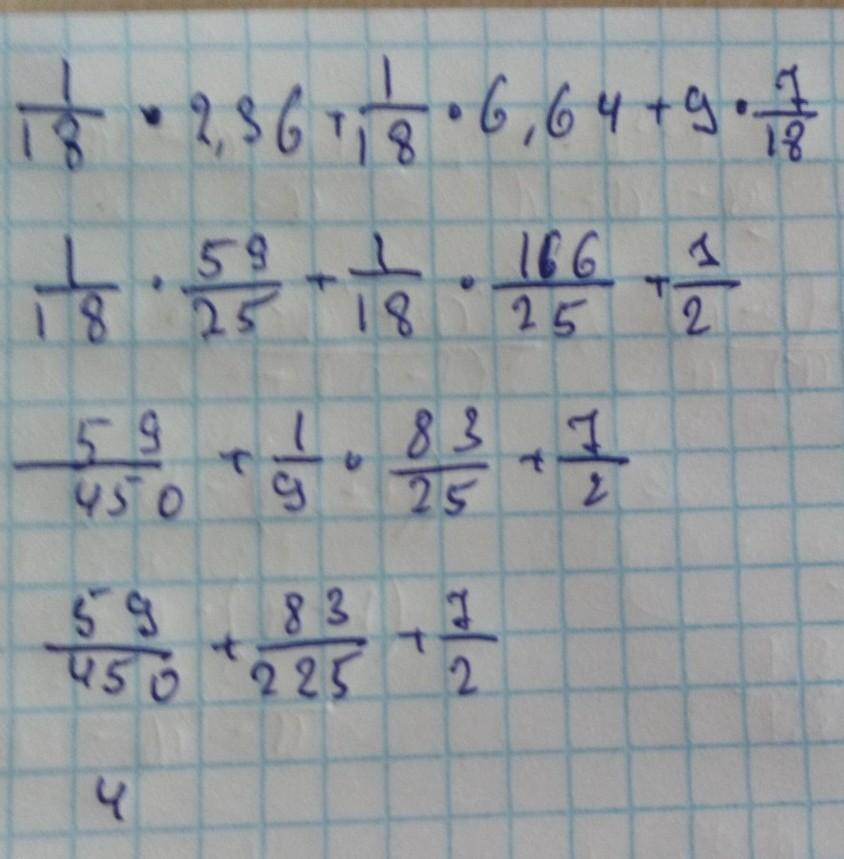 1/18 · 2,36 + 1/18 · 6,64 + 9 · 7/18
1/18 · 59/25 + 1/18 · 166/25 + 7/2
59/450 + 1/9 · 83/25 + 7/2
59/450 + 83/225 + 7/2
4